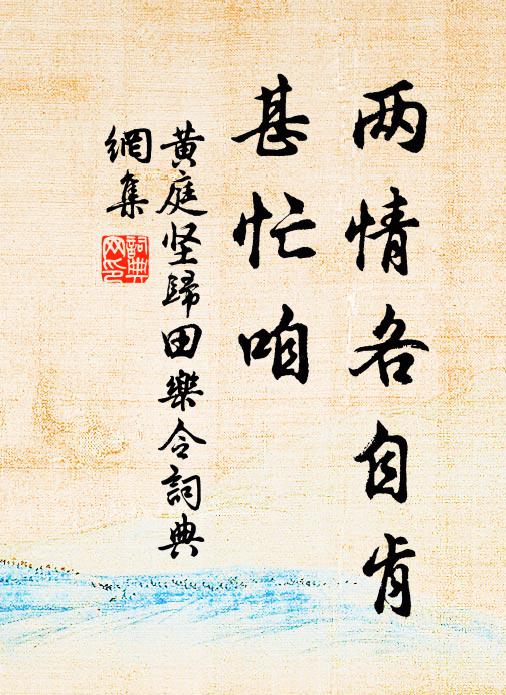 两情各自肯
甚忙咱
黄庭坚歸田樂令詞典
網集
詞典
网印